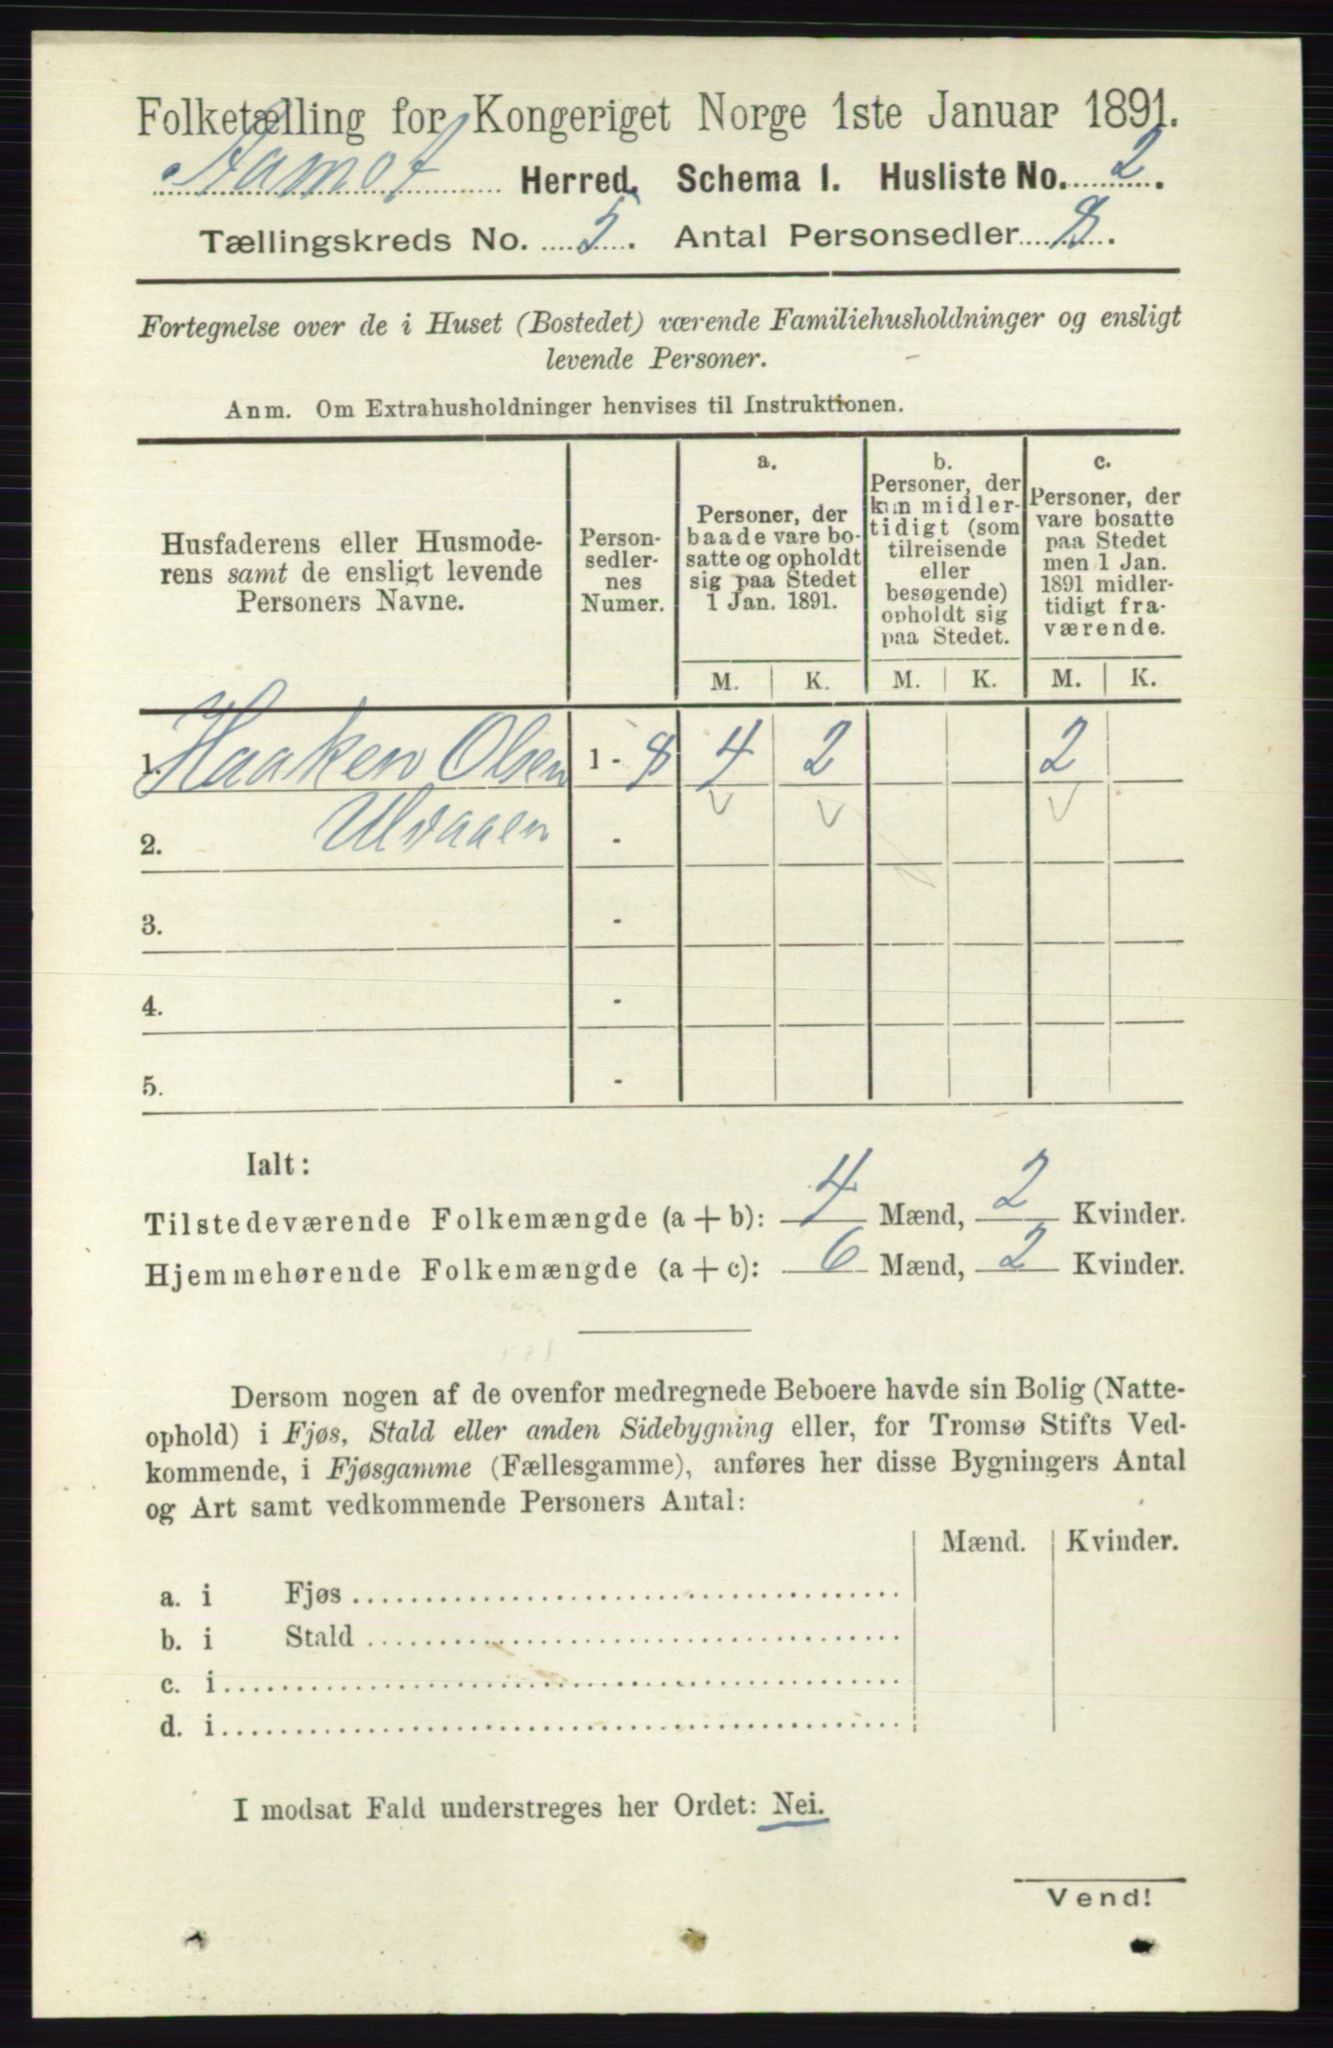 Folketælling for Kongeriget Norge 1ste Januar 1891.
Aamot Herred. Schema I. Husliste No. 2.
Tællingskreds No. 5. Antal Personsedler 8.
Fortegnelse over de i Huset (Bostedet) værende Familiehusholdninger og ensligt
levende Personer.
Anm. Om Extrahusholdninger henvises til Instruktionen.
Husfaderens eller Husmode-
rens samt de ensligt levende
Personers Navne.
Person-
sedler-
nes
Numer.
a.
Personer, der
baade vare bo-
satte og opholdt
sig paa Stedet
1 Jan. 1891.
b.
Personer, der
kun midler-
tidigt (som
tilreisende
eller
besøgende)
opholdt sig
paa Stedet.
c.
Personer, der
vare bosatte
paa Stedet
men 1 Jan.
1891 midler-
tidigt fra-
værende.
M. K. M. K. M. K.
1. Haaken Olsen 1 - 8 4 2 2
2. Ulvaaen -
3. -
4. -
5. -
Ialt:
Tilstedeværende Folkemængde (a + b): 4 Mænd, 2 Kvinder.
Hjemmehørende Folkemængde (a + c): 6 Mænd, 2 Kvinder.
Dersom nogen af de ovenfor medregnede Beboere havde sin Bolig (Natte-
ophold) i Fjøs, Stald eller anden Sidebygning eller, for Tromsø Stifts Ved-
kommende, i Fjøsgamme (Fællesgamme), anføres her disse Bygningers Antal
og Art samt vedkommende Personers Antal:
Mænd. Kvinder.
a. i Fjøs
b. i Stald
c. i
d. i
I modsat Fald understreges her Ordet: Nei.
Vend!